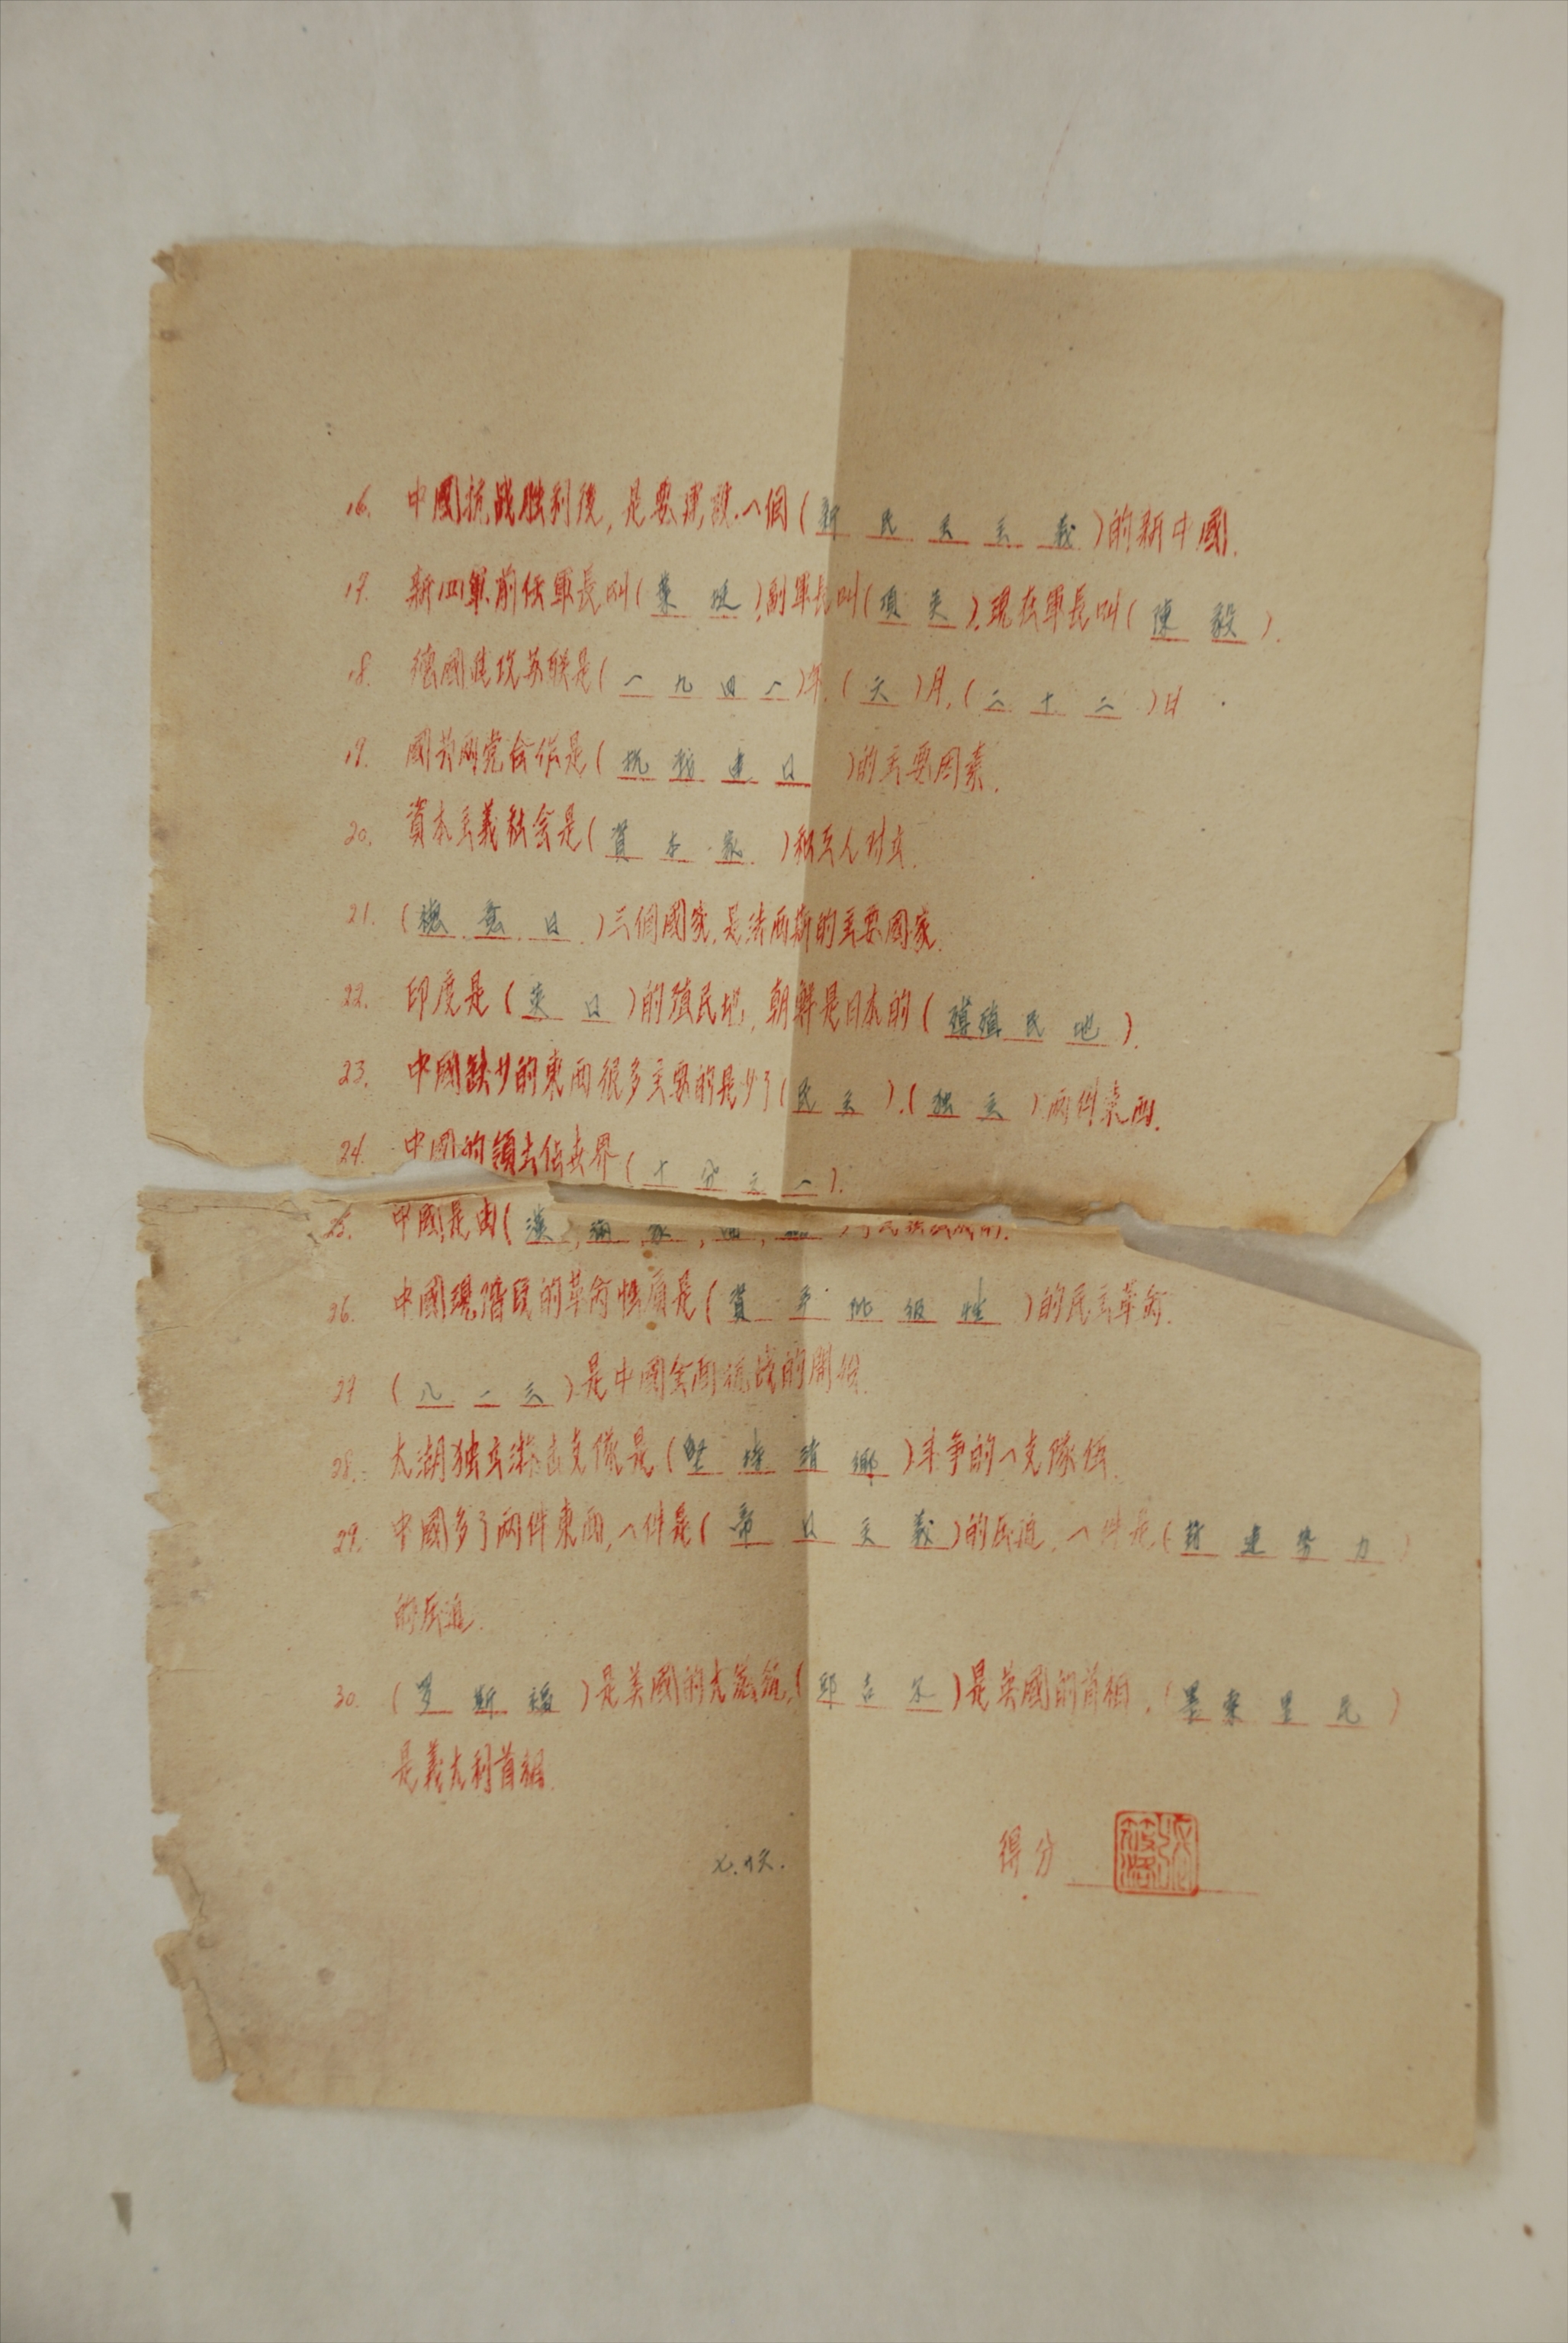 16. 中國抗战勝利後,是要建設一個(新民主主義)的新中國.
17. 新四軍前任軍長叫(葉挺),副軍長叫(項英),現在軍長叫(陳毅).
18. 德國進攻苏联是(一九四一)年,(六)月,(二十二)日
19. 國共兩党合作是(抗 建日)的主要因素.
20. 資本主義社会是(資本家)和工人对立.
21. (德意日)三個國家,是法西斯的主要國家.
22. 印度是(英日)的殖民地,朝鮮是日本的(殖民地).
23. 中國缺少的東西很多主要的是少了(民主).(独立)两件東西.
24. 中國的領土佔世界(十分之一).
25. 中國是由(漢,满,
26. 中國現階段的革命性質是(資 級性)的民主革命.
27 (八一三)是中國全面抗战的開始.
28. 太湖独立游击支隊是(堅持清鄉)斗争的一支隊伍.
29. 中國多了两件東西,一件是(帝日主義)的压迫,一件是(封建势力)
的压迫.
30. (罗斯福)是美國的大总統,(邱吉尔)是英國的首相,(墨索里尼)
是義大利首相.
得分